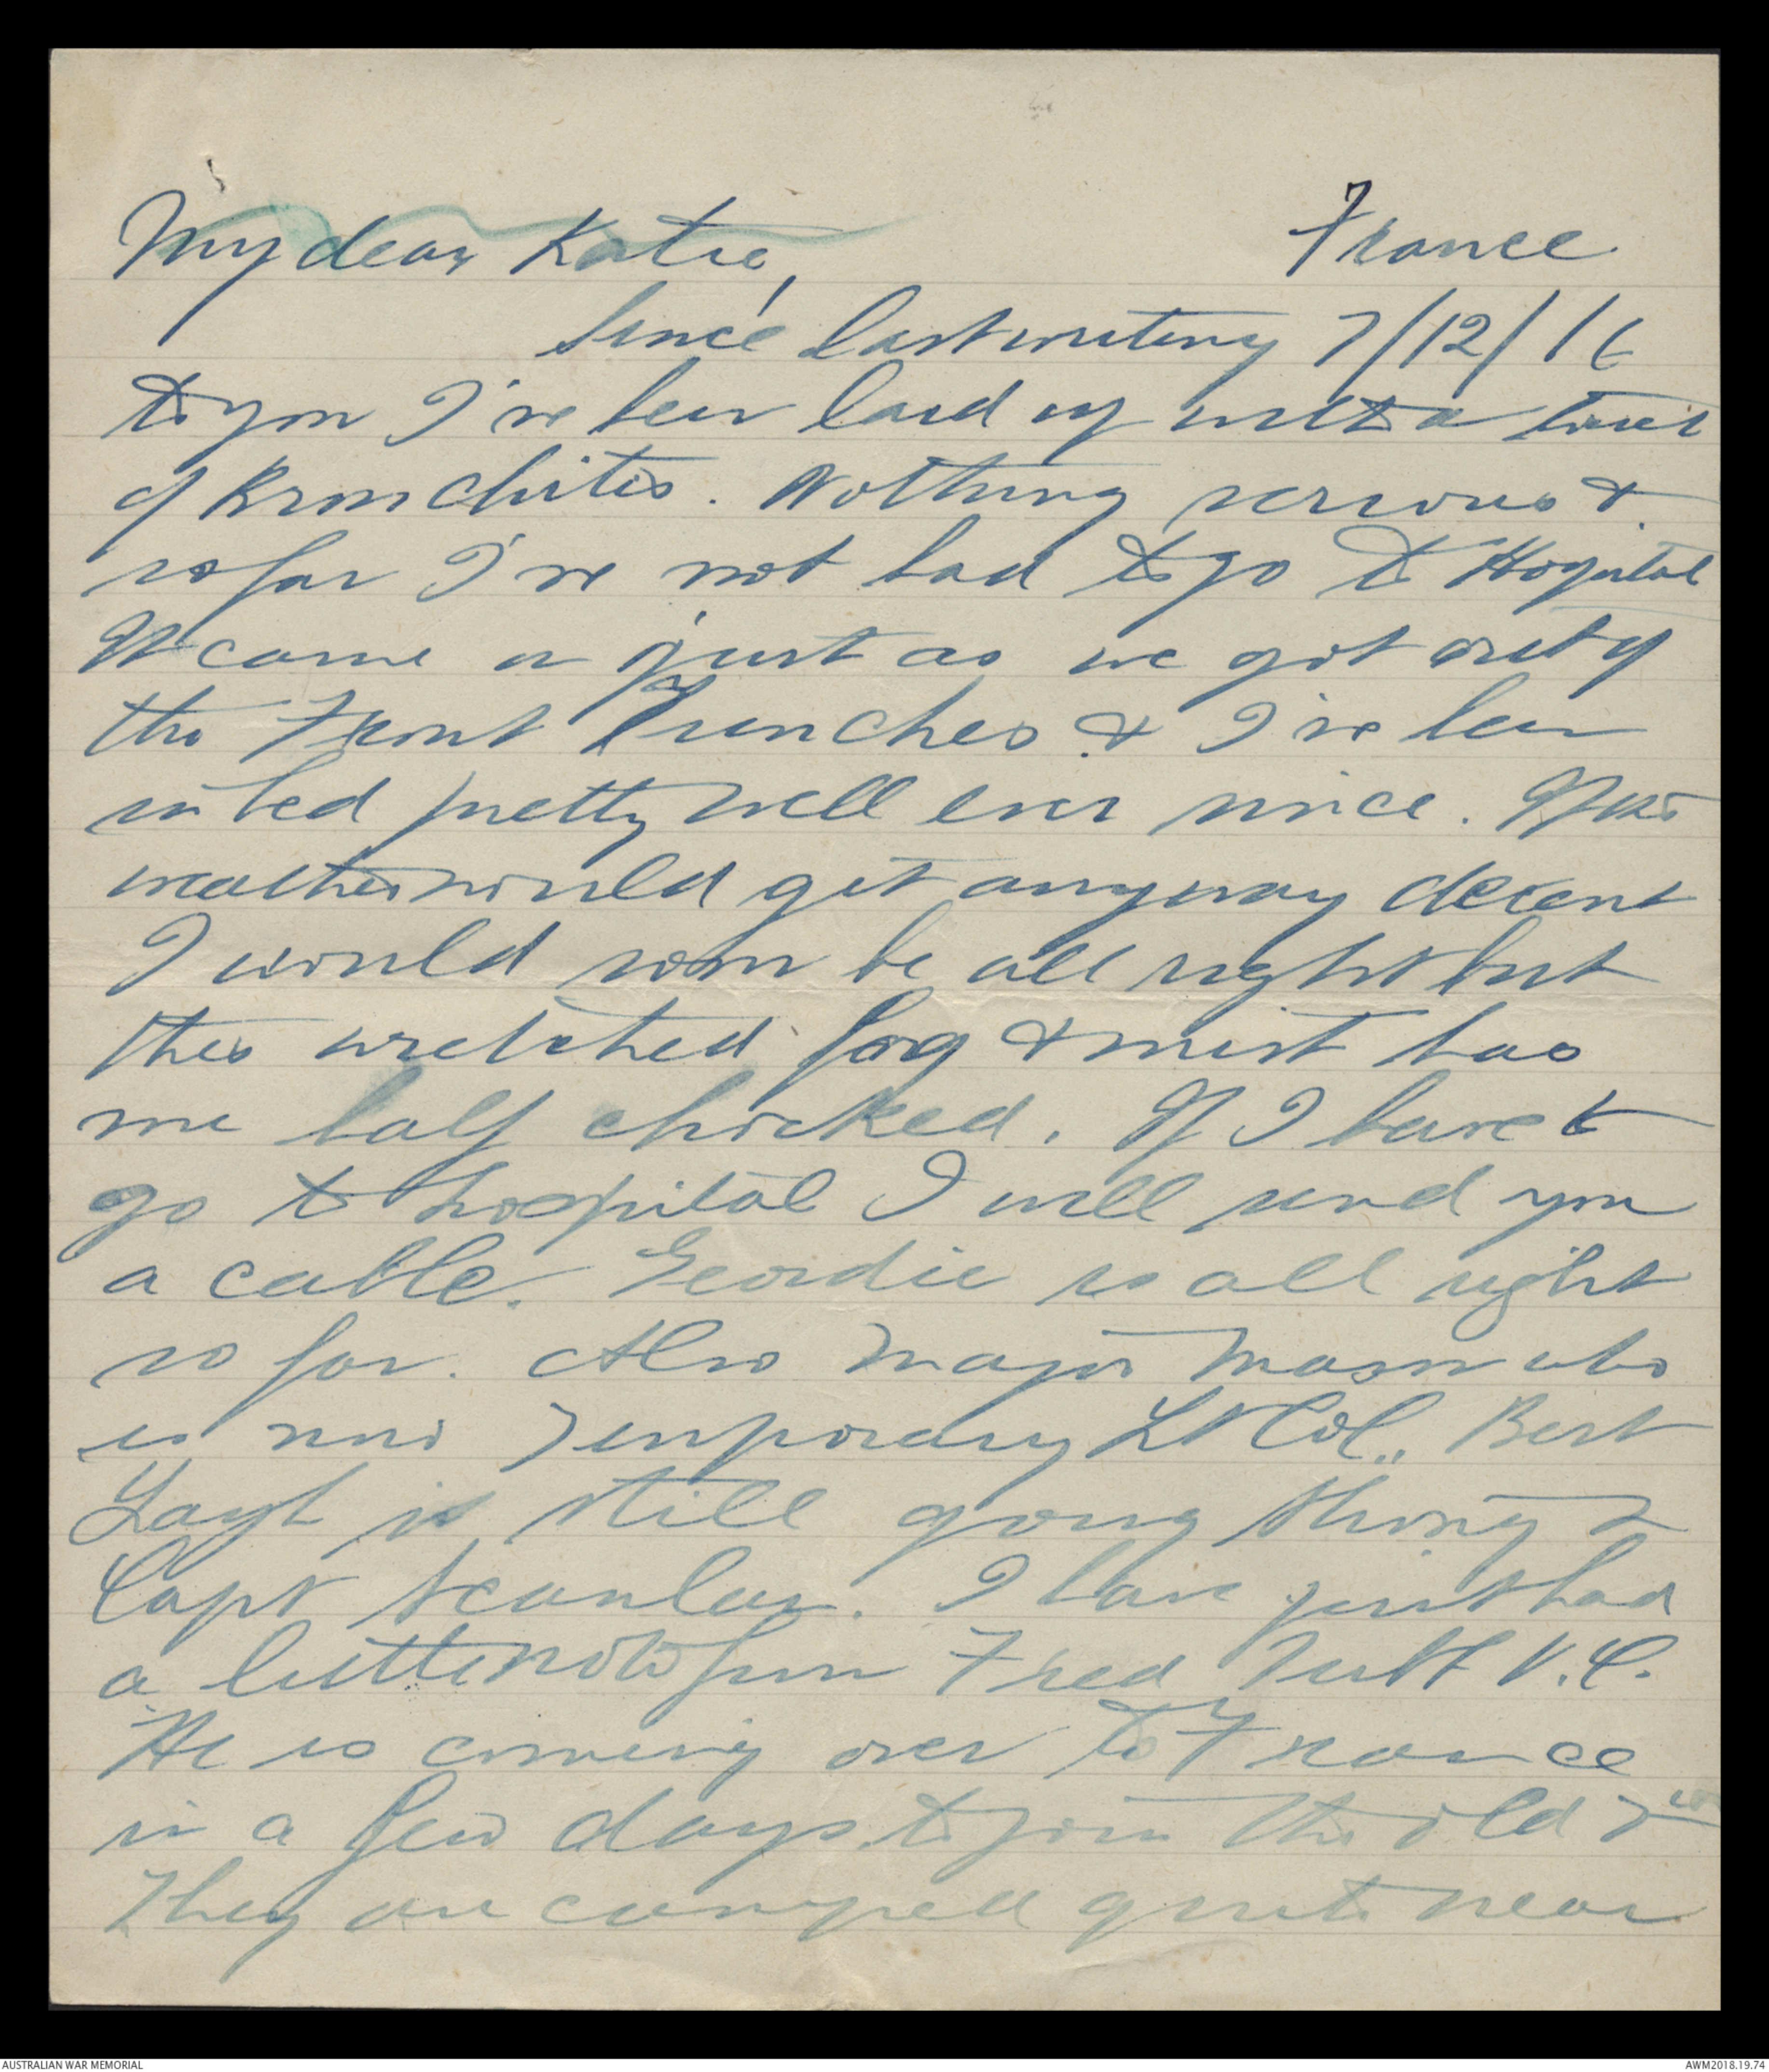 My dear Katie,
France
Since last writing 7/12/16
to you I've been laid up with a touch
of Bronchitis. Nothing serious &
so far I've not had to go to Hospital
It came on just as we got out of
the Front Trenches & I've been
in bed pretty well ever since. If the
weather would get anyway decent
I would soon be all right but
this wretched fog & mist has
me half chocked. If I have to
go to hospital I will send you
a cable. Geordie is all right
so far. Also Major Mason who
is now Temporary Lt Col., Bert
Layh is still going strong &
Capt Scanlan. I have just had
a letter note from Fred Tubb V.C.
He is coming over to France
in a few days to join the old 7th
They are camped quite near
AUSTRALIAN WAR MEMORIAL
AWM2018.19.74